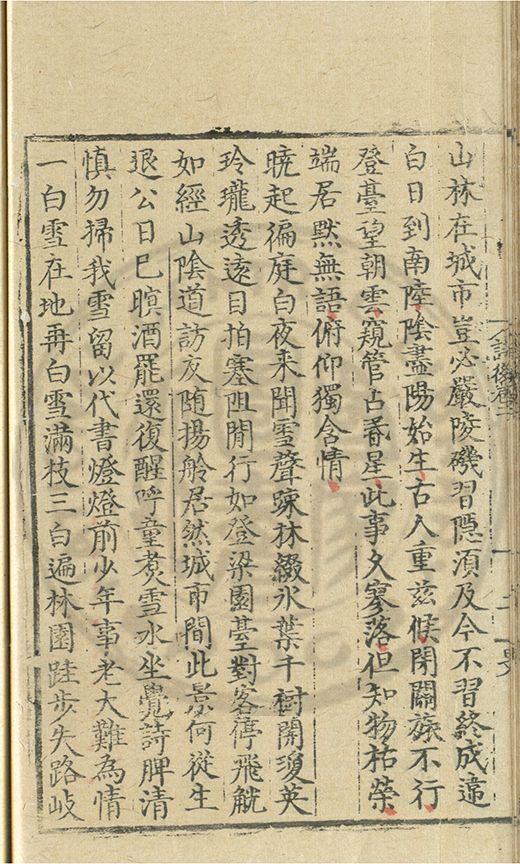 山林在城市豈必嚴陵磯習隱須及今不習終成違
白日到南陸陰盡陽始生古人重茲候閉關旅不行
登臺望朝雲窺管占昏星此事久寥落但知物枯榮
端居默無語俯仰獨含情
曉起徧庭白夜來聞雪聲疎林綴氷葉千樹開瓊英
玲瓏透遠目拍塞阻閒行如登梁園臺對客停飛觥
如經山陰道訪友随揚舲居然城市間此景何從生
退公日已暝酒罷還復醒呼童煑雪水坐覺詩脾清
慎勿掃我雪留以代書燈燈前少年事老大難為情
一白雪在地再白雪滿枝三白遍林園跬步失路岐